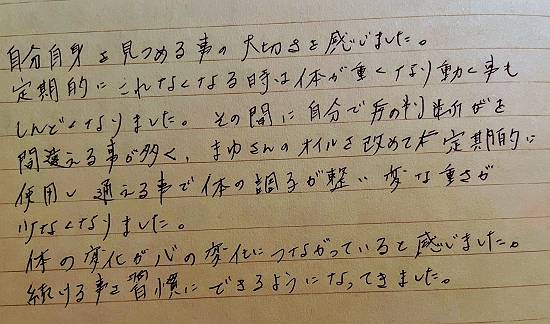 自分自身を見つめる事の大切さを感じました。
定期的にこれなくなる時は体が重くなり動く事も
しんどくなりました。その間に自分での判断がを
間違える事が多く、まゆさんのオイルを改めて定期的に
使用し通える事で体の調子が整い変な重さが
少なくなりました。
体の変化が心の変化につながっていると感じました。
続ける事を習慣にできるようになってきました。